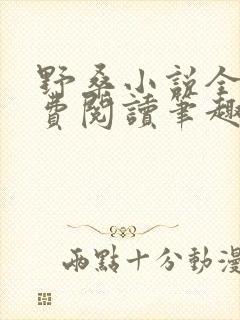 野桑小说全
費閱讀筆趣
兩點十分動漫